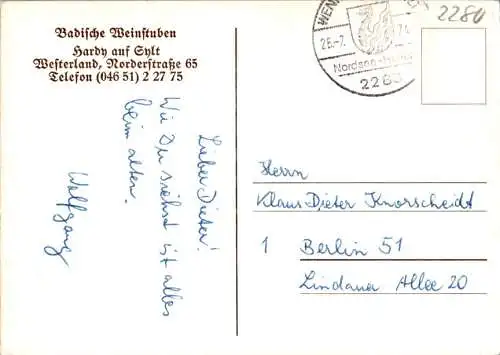 Badische Weinstuben
Hardy auf Sylt
Westerland, Norderstraße 65
Telefon (046 51) 2 27 75
2280
26.-7.
Nordsee
2283
Lieber Dieter!
Wie Du siehst ist alles
beim alten.
Wolfgang
Herrn
Klaus Dieter Knorscheidt
1 Berlin 51
Lindauer Allee 20